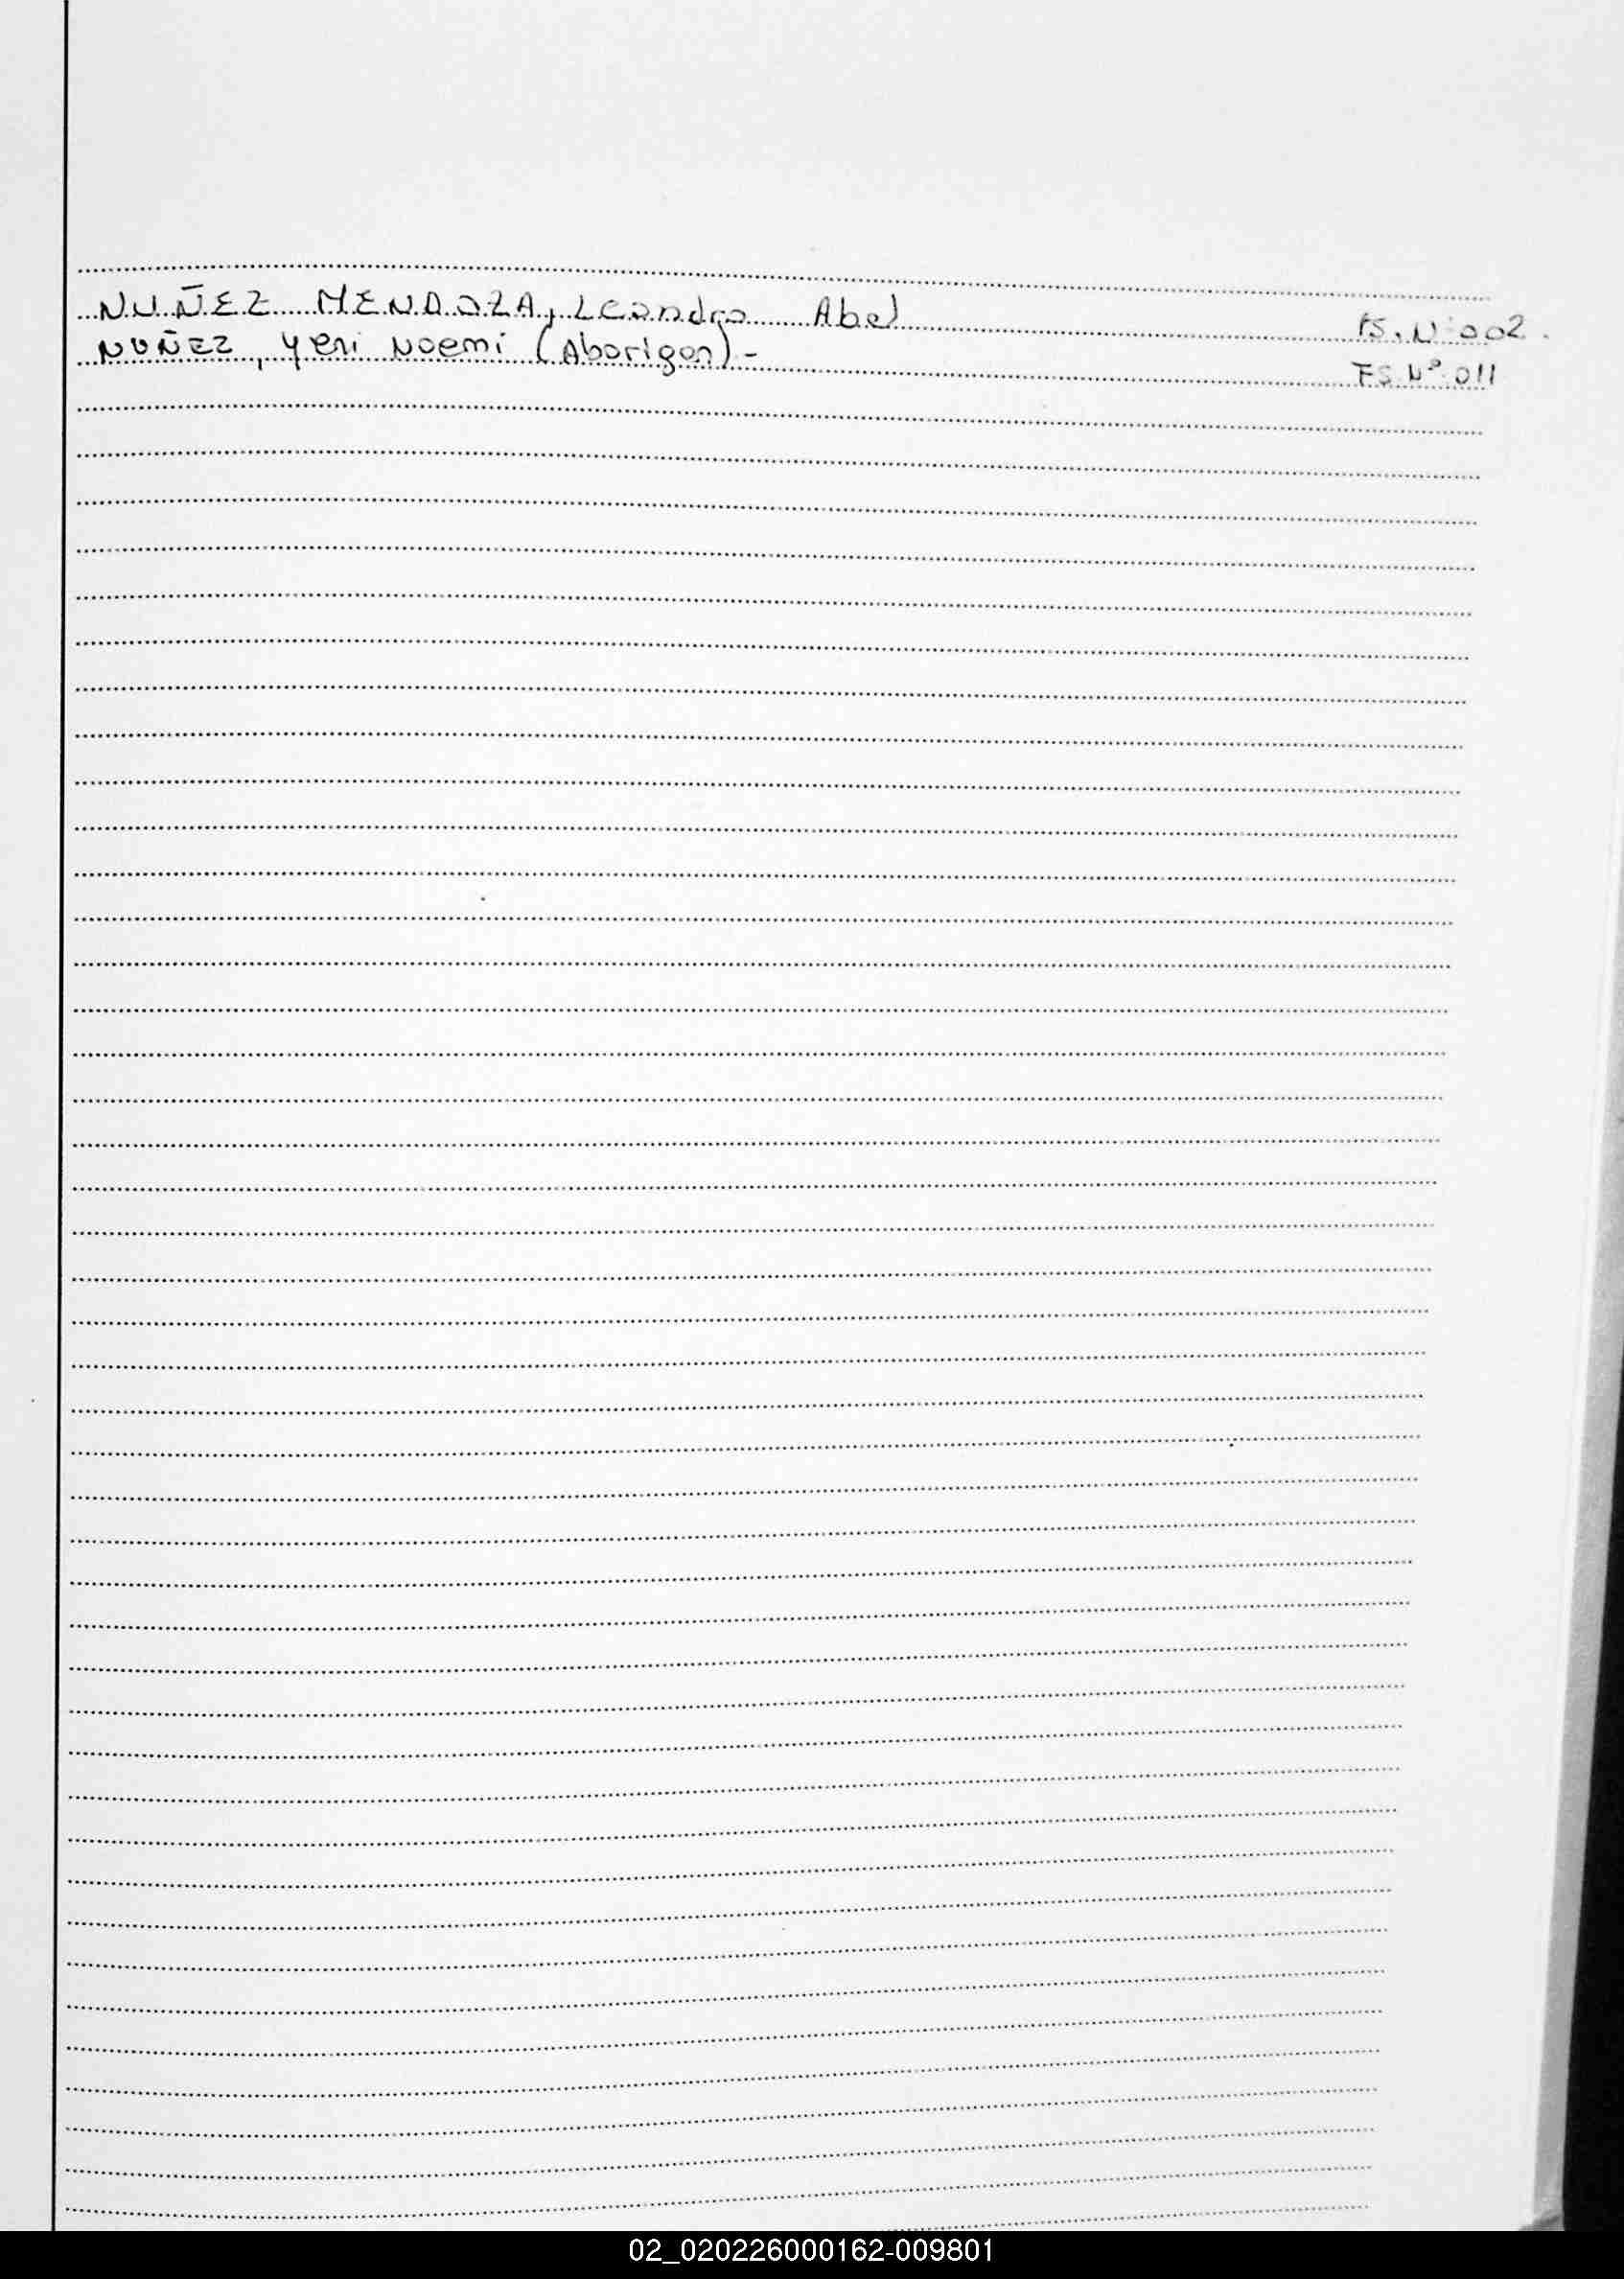 NUÑEZ MENDOZA, Leandro Abel FS. Nº 002.
NUÑEZ, Yeni Noemi (Aborigen)- FS Nº 011
02_020226000162-009801